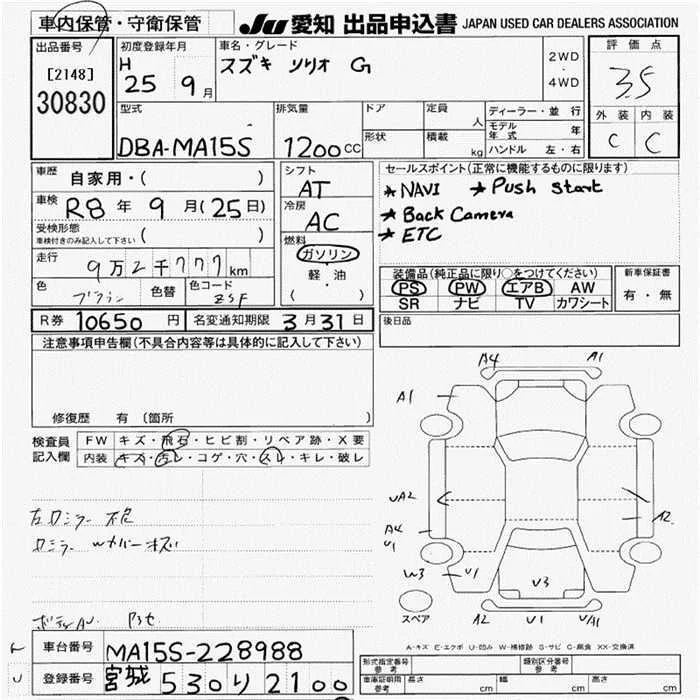 車内保管・守衛保管
JU 愛知 出品申込書 JAPAN USED CAR DEALERS ASSOCIATION
出品番号
[2148]
30830
初度登録年月
H 25 9月
車名・グレード
スズキ ソリオ G
2WD
・
4WD
評価点
3.5
外装 内装
C C
型式
DBA-MA15S
排気量
1200cc
ドア
形状
定員 人
積載 kg
ディーラー・並行
モデル年式 年
ハンドル 左・右
車歴 自家用・( )
車検 R8年9月(25日)
受検形態
車検付きのみ記入して下さい ( )
走行 9万2千777km
色 ブラウン
色替
色コード ZSF
シフト
AT
冷房
AC
燃料
ガソリン
軽・油
( )
セールスポイント(正常に機能するものに限ります)
★NAVI ★Push start
★Back Camera
★ETC
装備品(純正品に限り○をつけてください)
PS PW エアB AW
SR ナビ TV カワシート
新車保証書
有・無
R券 10650円
名変通知期限 3月31日
後日品
注意事項申告欄(不具合内容等は具体的に記入して下さい)
修復歴 有 (箇所 )
検査員記入欄
FW キズ・飛石・ヒビ割・リペア跡・X要
内装 キズ・汚レ・コゲ・穴・スレ・キレ・破レ
A4 A1
A1
UA2
A4
U1
W3 U1
U3
A2
A2 U1 UA1
スペア
A-キズ E-エクボ U-凹み W-補修跡 S-サビ C-腐食 XX-交換済
車台番号 MA15S-228988
登録番号 宮城 530 り 2100
形式指定番号
参考
類別区分番号
参考
車庫証明用
参考
長さ cm
幅 cm
高さ cm